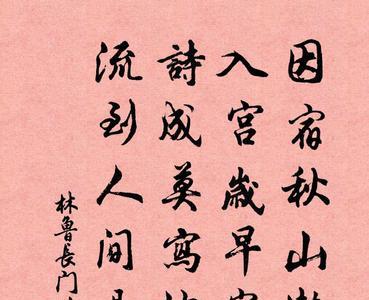 因宿秋山
入宫歲早
詩成莫寫
流到人间
林鲁長门